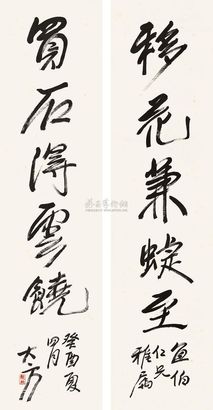 移花兼蜨至
伯
仁兄
雅屬
買石得雲饒
癸酉夏
四月
大方